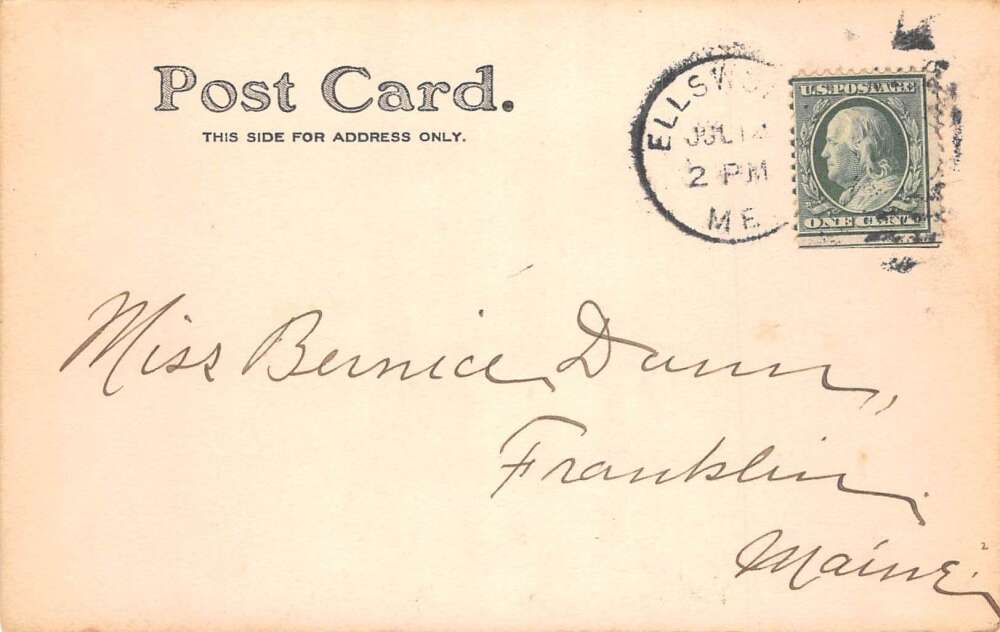 Post Card.
THIS SIDE FOR ADDRESS ONLY.
ELLSWO
JUL 12
2 PM
ME
U.S. POSTAGE
ONE CENT
Miss Bernice Dunn,
Franklin,
Maine.
2